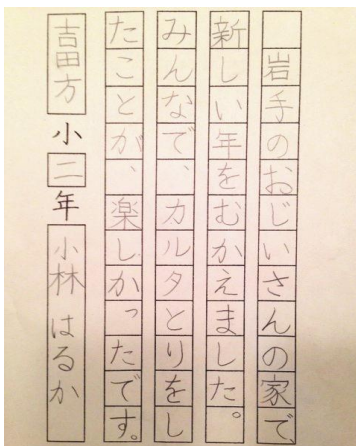 岩手のおじいさんの家で、
新しい年をむかえました。
みんなで、カルタとりをし
たことが、楽しかったです。
吉田方小二年 小林はるか